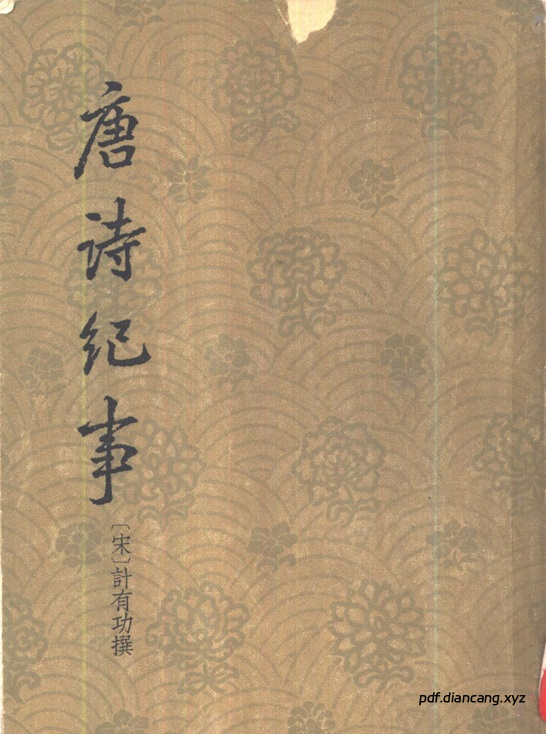 唐诗纪事
〔宋〕計有功撰
pdf.diancang.xyz